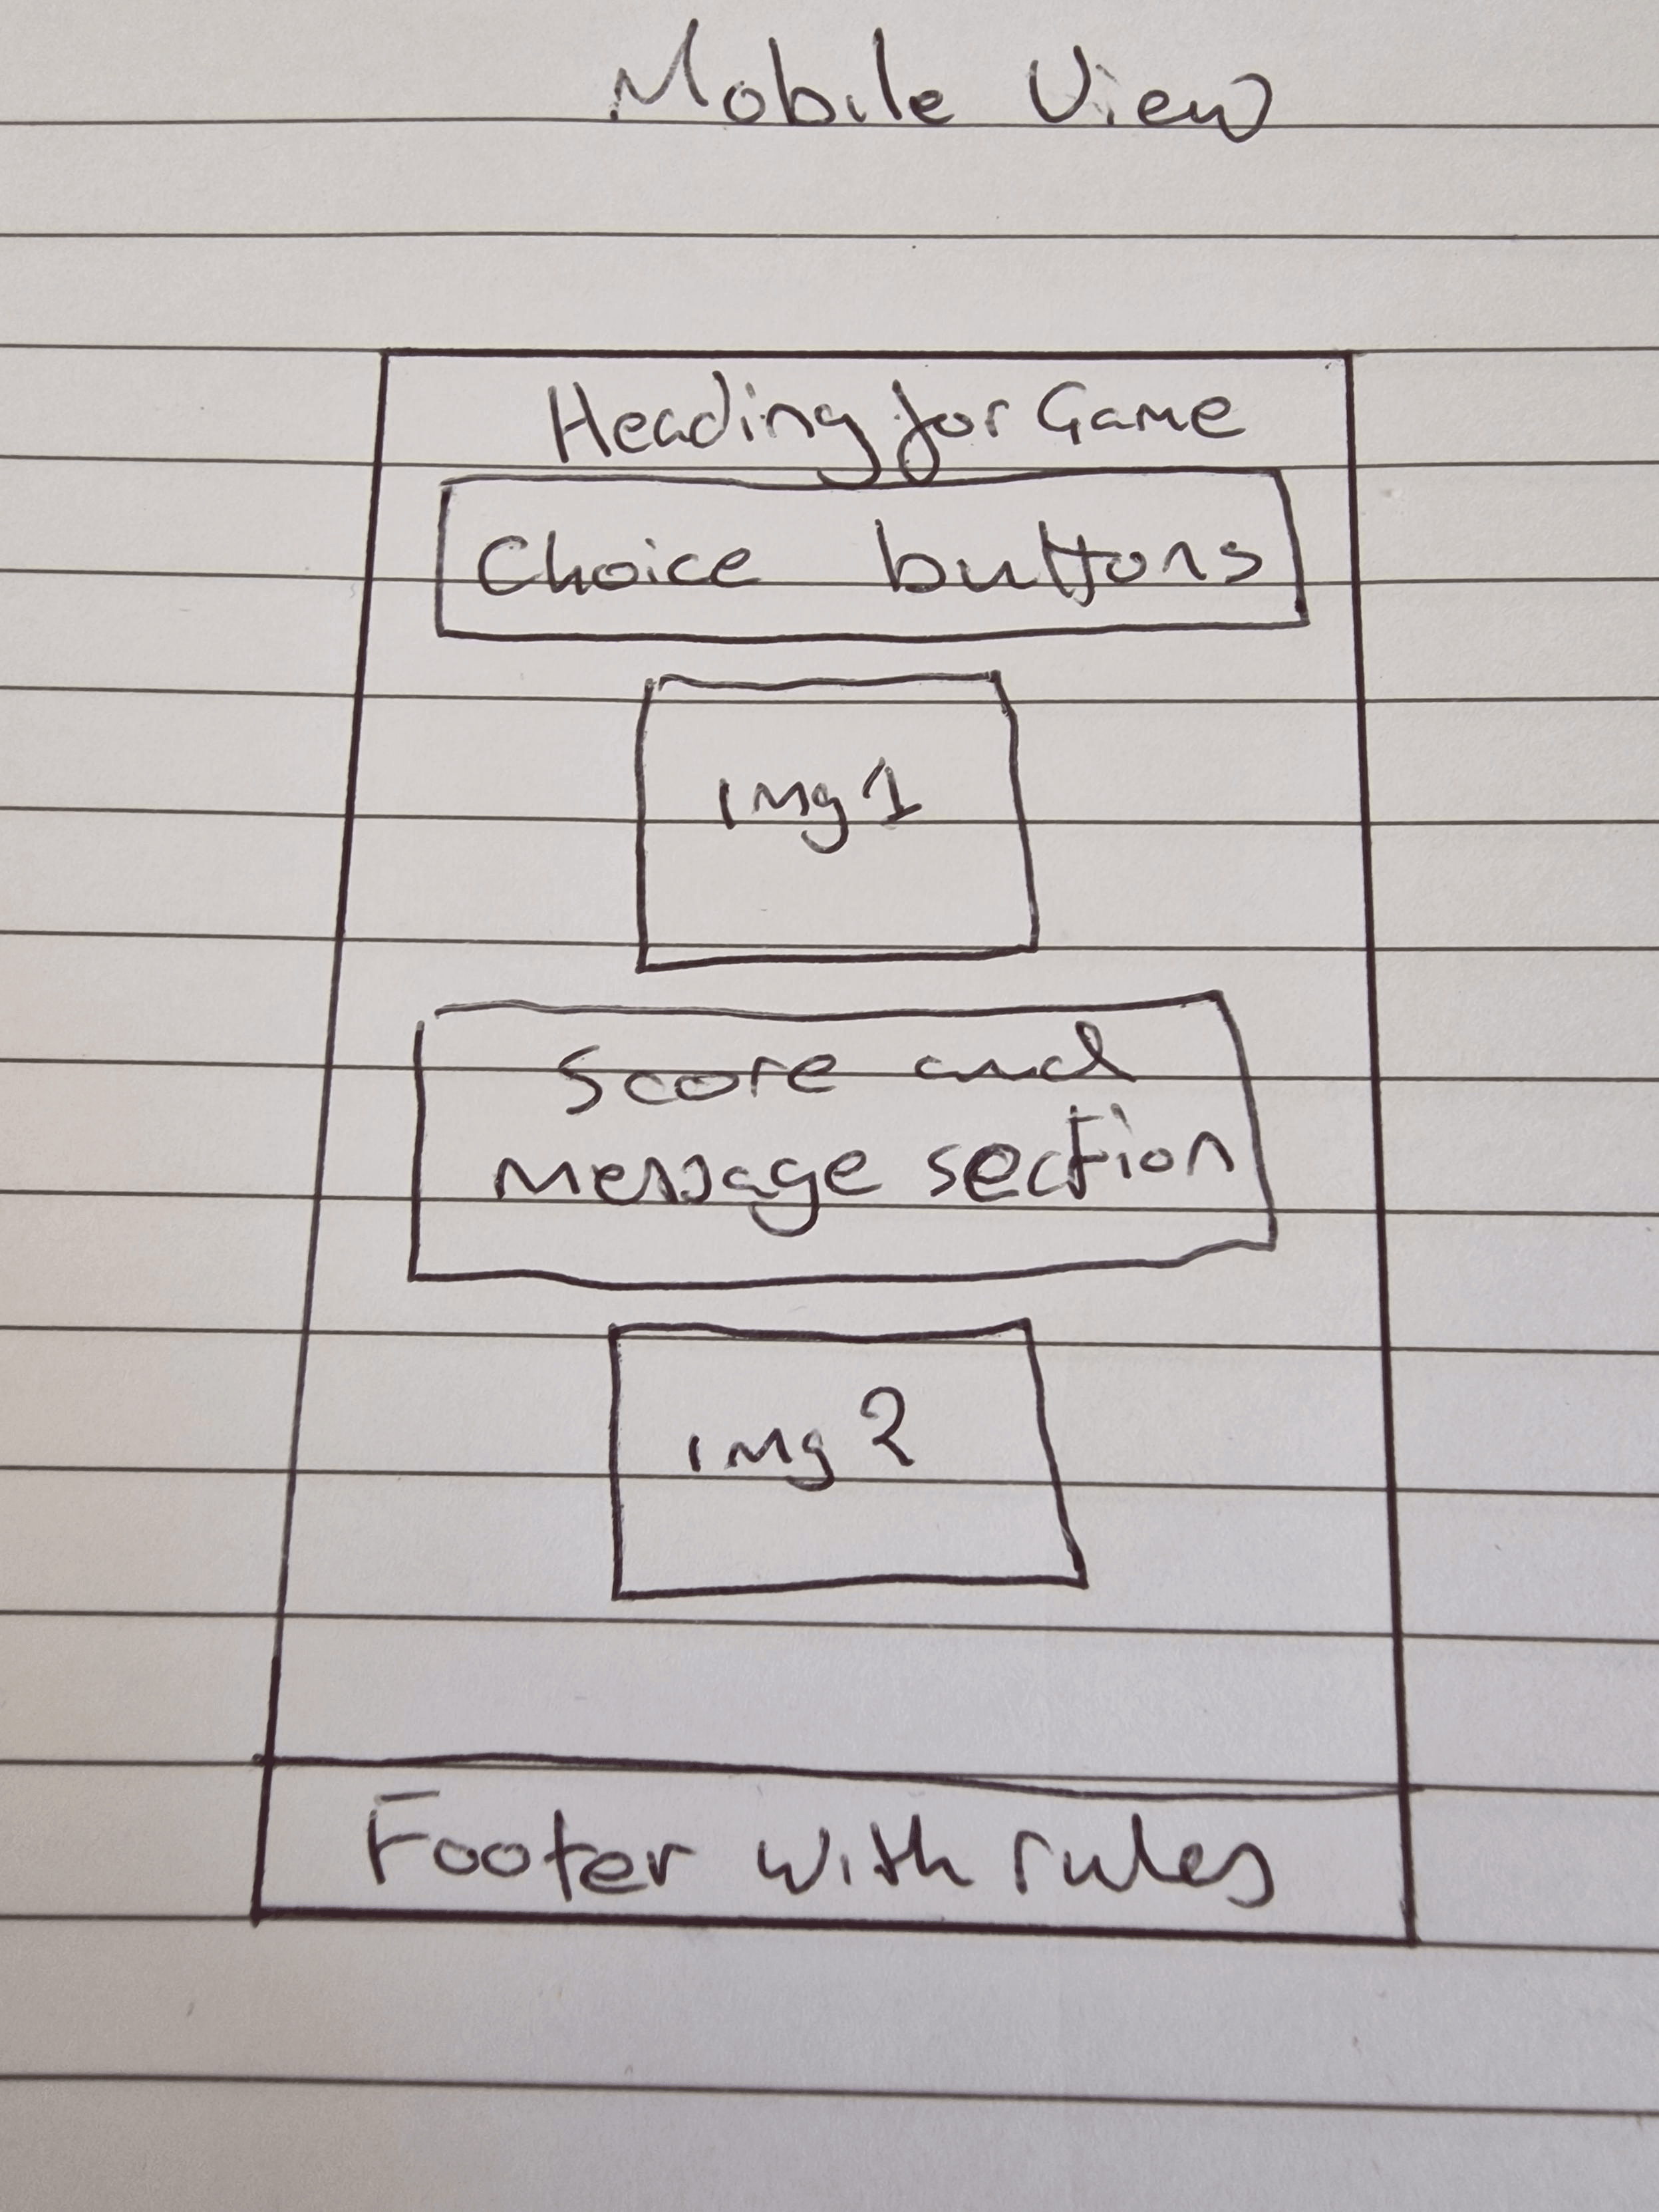 Mobile View
Heading for Game
Choice buttons
img 1
Score and
message section
img 2
Footer with rules